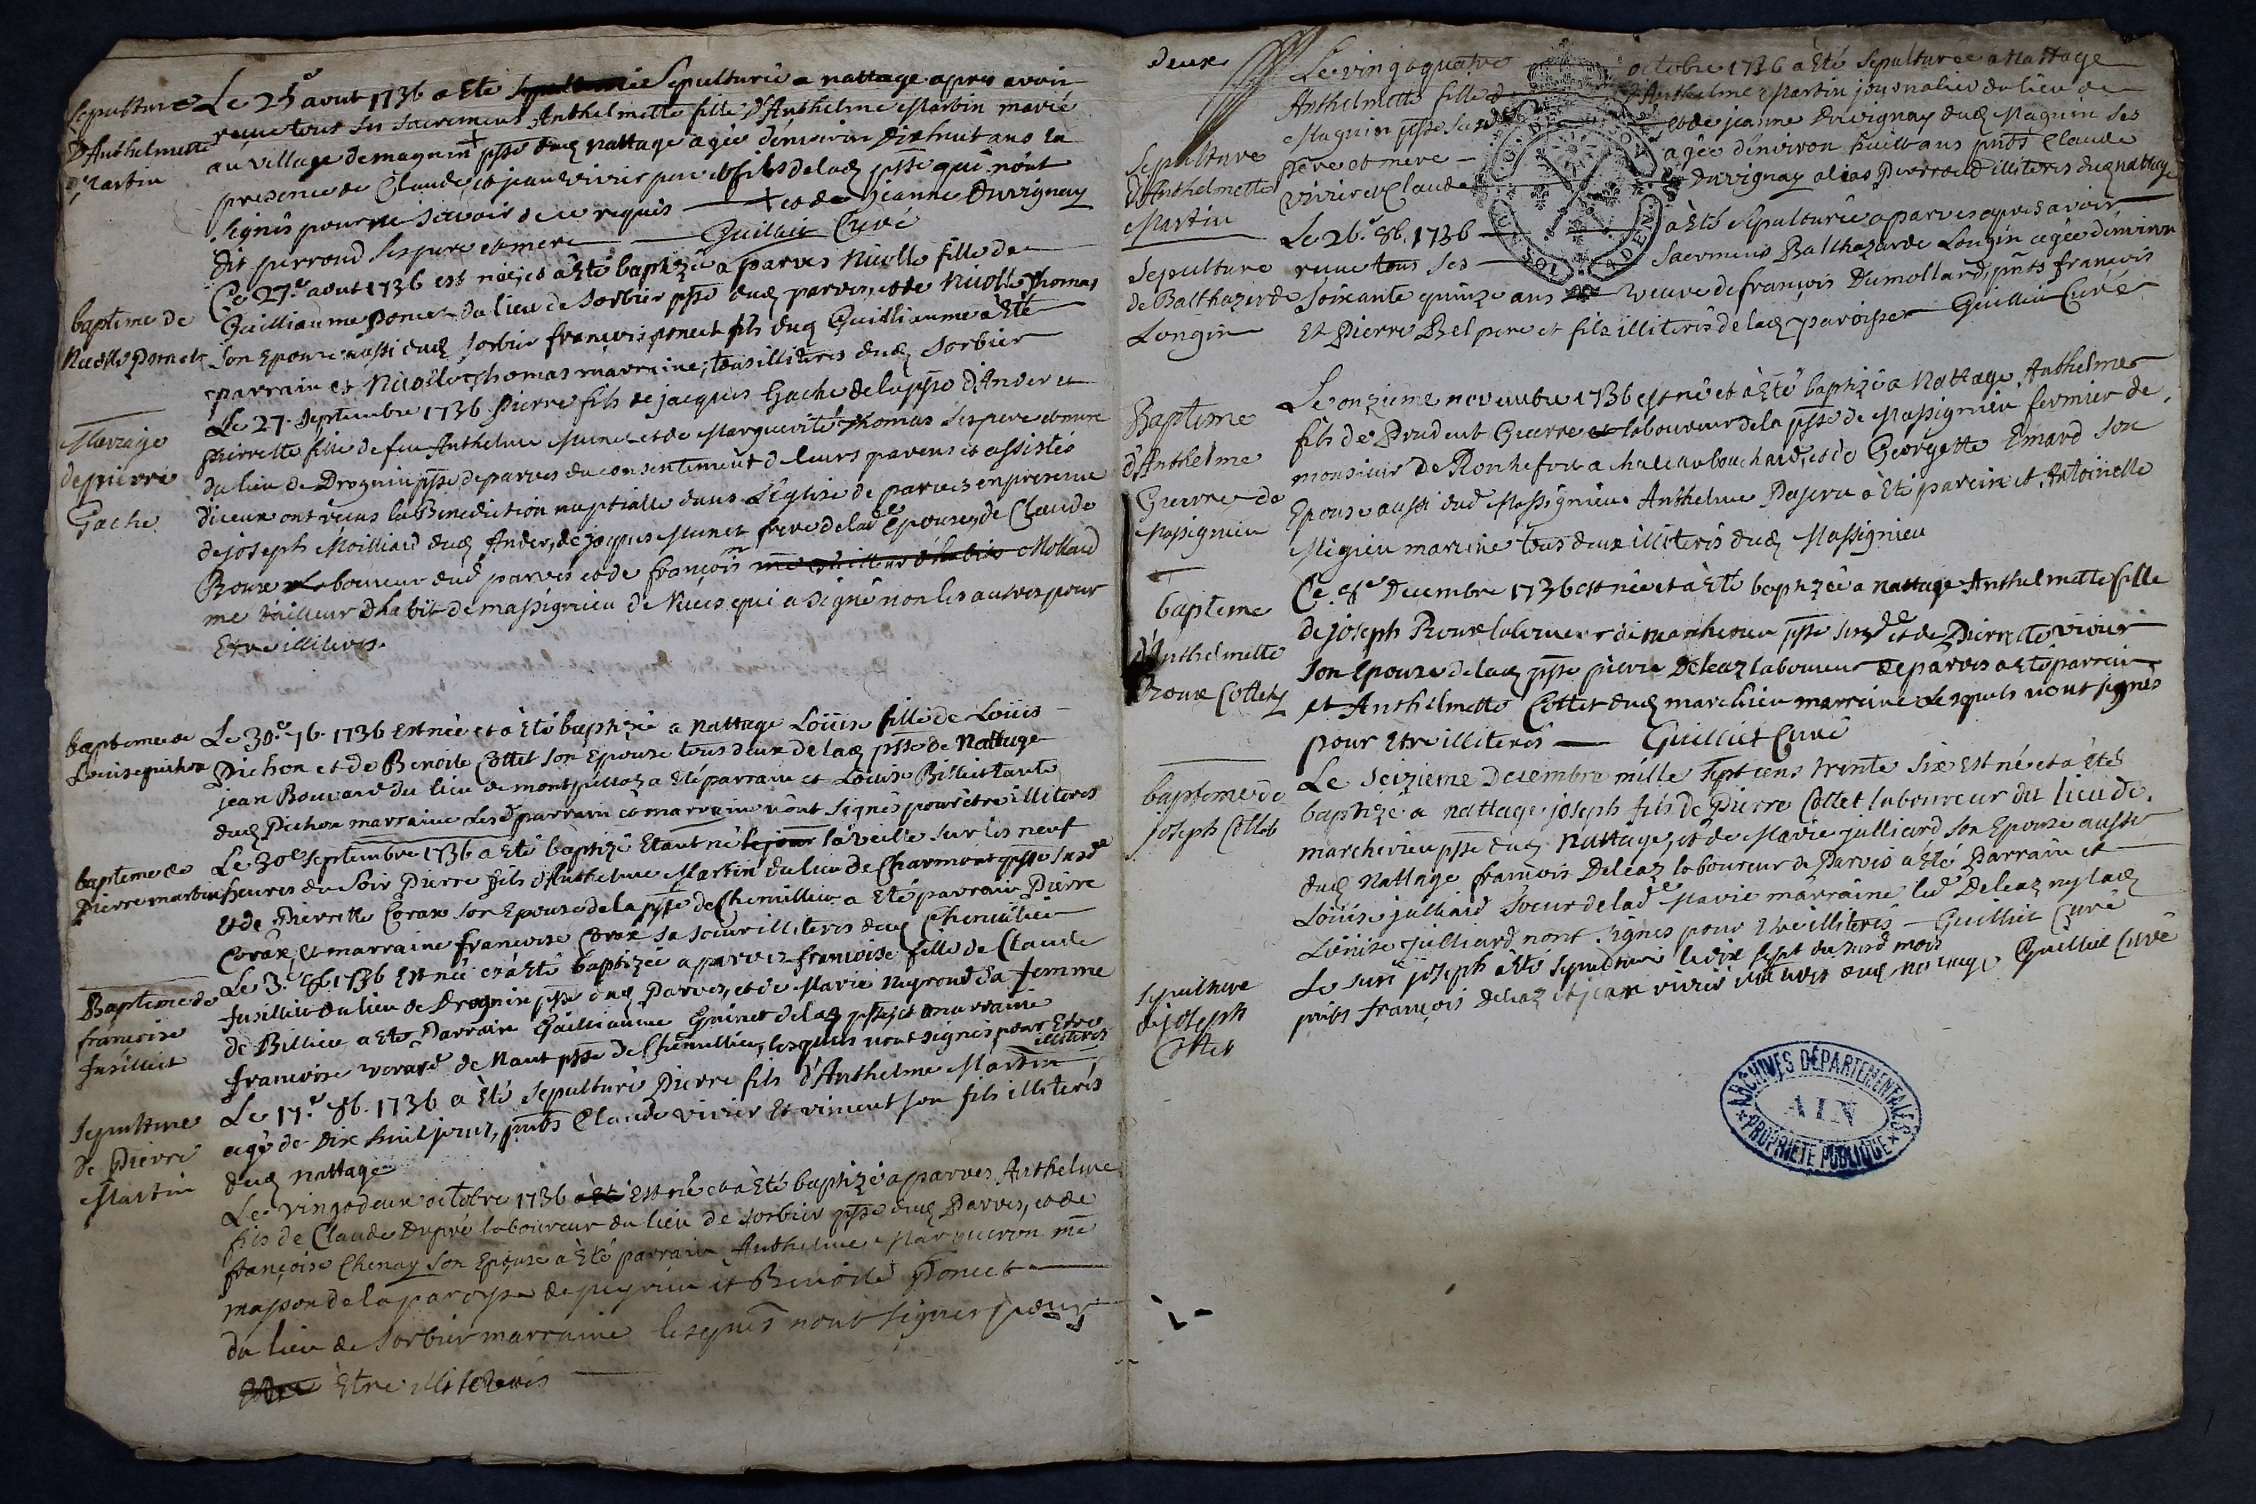 Sepulture
D'Anthelmette
Martin
Le 25e aout 1736 a Eté Sepulturée a nattage apres avoir
receu tous ses sacremens Anthelmette fille d'Anthelme Martin marié
au village de magnin + psse dudt nattage agée denviron Dixhuit ans en
presence de Claude, et jean vivier pere et fils de ladt psse qui n'ont
signés pour ne scavoir de ce requis + et de Jeanne Duvignay
dit perroud ses pere et mere Guilliet Curé
bapteme de
Nicolle poncet
Ce 27e aout 1736 est née, et a Eté baptizée a parves Nicolle fille de
Guilliaume poncet du lieu de Sorbier psse dudt parves, et de Nicolle Thomas
son Epouse aussi dudt Sorbier françois poncet fils dudt Guilliaume a Eté
parrain et Nicolle Thomas marraine, tous illiterés dudt Sorbier
Marzaige
de pierre
Gache
Le 27 Septembre 1736 Pierre fils de jacques Gache de la psse d'Ander et
pierrette fille de feu Anthelme Munet et de Marguerite Thomas ses pere et mere
du lieu de Drognin psse de parves du consentement de leurs parens et assistés
diceux ont receus la Benediction nuptialle dans L'Eglise de parves en presence
de joseph Moilliard dudt Ander, de jacques Munet frere de lade Epouse, de Claude
Roux Laboureur dudt parves et de françois Mollard
me tailleur dhabit de massignieu de Rives qui a signé non les autres pour
Etre illiterés.
bapteme de
Louise pichon
Le 30e 7b. 1736 est née et a Eté baptizée a nattage Loüise fille de Loüis
Pichon et de Benoite Cottet son Epouse tous deux de ladt psse de Nattage
jean Bouvard du lieu de montpellaz a Eté parrain et Loüise Billiet tante
dudt Pichon marraine Lesdt parrain et marraine n'ont signés pour être illiterés
bapteme de
Pierre martin
Le 30e Septembre 1736 a Eté baptizé Etant né la veille sur les neuf
heures du Soir Pierre fils d'Anthelme Martin du lieu de Charmont psse susde
et de Pierrette Corax son Epouse de la psse de Chemillieu a Eté parrain Pierre
Corax, et marraine françoise Corax sa soeur illiterés dudt Chemillieu
Bapteme de
françoise
fusilliet
Le 3e 8b. 1736 Est née et a Eté baptizée a parves françoise fille de Claude
fusilliet du lieu de Drognin psse dudt Parves, et de Marie Neyroud sa femme
de Billieu a Eté Parrain Guilliaume Guinet de ladt psse, et marraine
françoise verard de Nant psse de Chemillieu, lesquels n'ont signés pour Etre
illiterés
Sepulture
de Pierre
Martin
Le 17e 8b. 1736 a Eté Sepulturé Pierre fils d'Anthelme Martin
agé de Dix huit jours, pnts Claude vivier Et vincent son fils illiterés
dudt nattage
Le vingtdeux octobre 1736 Est né et a Eté baptizé a parves Anthelme
fils de Claude Dupré laboureur du lieu de Sorbier psse dudt Parves, et de
françoise Chenay son Epouse a Eté parrain Anthelme Marqueron me
masson de la paroisse de peyrieu et Benoite Poncet
du lieu de Sorbier marraine lesquels n'ont signer pour
Etre illiterés
deux
Sepulture
d'Anthelmette
Martin
Le vingtquatre octobre 1736 a Eté Sepulturée a Nattage
Anthelmette fille d'Anthelme Martin journalier du lieu de
Magnin psse susde et de jeanne Duvignay dudt Magnin ses
pere et mere agée d'environ huit ans pnts Claude
vivier et Claude Duvignay alias Perroud illiterés dudt nattage
Sepulture
de Balthazarde
Longin
Le 26e 8b. 1736 a Eté Sepulturée a parves apres avoir
receu tous ses Sacremens Balthazarde Longin agée d'environ
soixante quinze ans veuve de françois Dumollard, pnts françois
et Pierre Bel pere et fils illiterés de ladt paroisse Guilliet Curé
Bapteme
d'Anthelme
Guerre de
Massignieu
Le onzieme novembre 1736 est né et a Eté baptizé a Nattage Anthelme
fils de Prudent Guerre laboureur de la psse de Massignieu fermier de
monsieur de Rochefort a chateaubouchard, et de Georgette Emard son
Epouse aussi dudt Massignieu Anthelme Paserv a Eté parein et Antoinette
Migieu mareine tous deux illiterés dudt Massignieu
bapteme
d'Anthelmette
Roux Cottet
Ce 8e Decembre 1736 est née et a Eté baptizée a nattage Anthelmette fille
de joseph Roux laboureur de marchieu psse susde et de Pierrette vivier
son Epouse de ladt psse pierre Deleaz laboureur de parves a Eté parrein
et Anthelmette Cottet dudt marchieu marreine Lesquels n'ont signés
pour Etre illiterés Guilliet Curé
bapteme de
joseph Cottet
Le Seizieme Decembre mille Sept cens trente six est né et a Eté
baptizé a nattage joseph fils de Pierre Cottet laboureur du lieu de
marchevieu psse dudt Nattage, et de Marie julliard son Epouse aussi
dudt Nattage françois Deleaz laboureur de Parves a Eté Parrain et
Loüise julliard soeur de lade Marie marraine led Deleaz ny ladt
Loüise Julliard n'ont signés pour Etre illiterés Guilliet Curé
Sepulture
de joseph
Cottet
Le susd joseph a Eté Sepulturé le dix sept du susd mois
pnts françois Deleaz et jean vivier illiterés dudt nattage Guilliet Curé
ARCHIVES DÉPARTEMENTALES
AIN
PROPRIÉTÉ PUBLIQUE